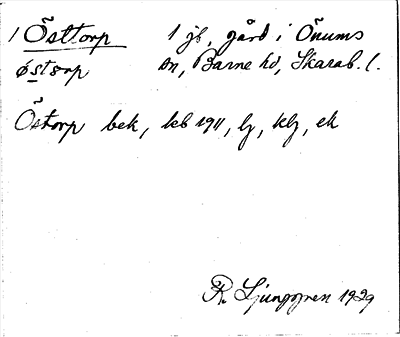 1 Östtorp 1 jb, gård i Önums
östorp sn, Barne hd, Skarab. l.
Östorp bek, kb 1911, lj, klj, ek
R. Ljunggren 1929